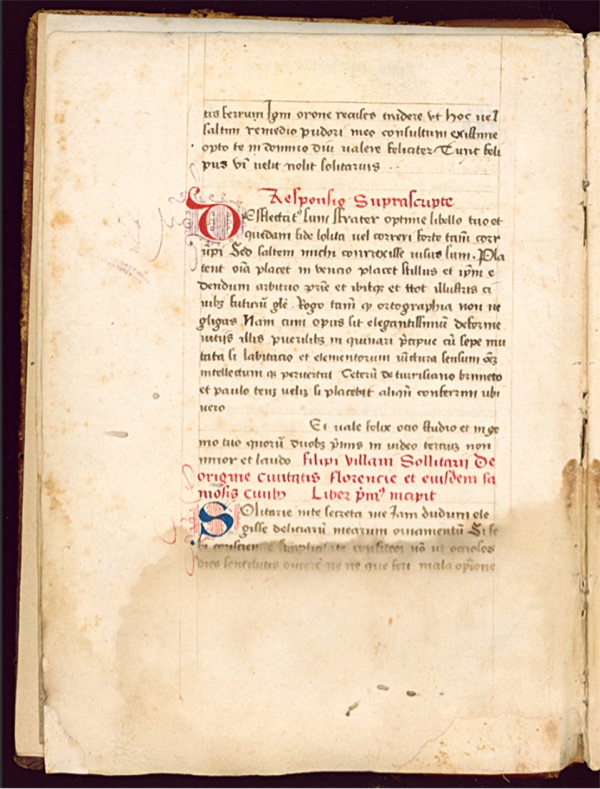 tis ferrum Ipm orone recuses tradere vt hoc uel
saltim remedio pudori meo consultum existime
opto te in domino diu valere feliciter Tunc feli
pus vi velit nolit solitarius
Responsio Suprascripte
DEflectat sum frater optime libello tuo et
quedam fide lolita uel correri forte tam corr
upi Sed saltem michi correxisse visus sum. Pla
cent oia placet inuencio placet stillus et ipm e
dendum arbitrio prie et ibitqz et ttot illustris ci
uibz futurum gle Rogo tam qz ortographia non ne
gligas Nam cum opus sit elegantissimum deforme
uitijs illis puerilibz inquinari pcipue cum sepe mu
tata si labitacio et elementorum iuctura sensum oez
intellectum qz peruertat Ceterum de turrisiano bruneto
et paulo tenz velis si placebit aliqm conferrmi ubi
uero
Et uale felix ocio studio et inge
nio tuo quorum duobz pmis in video tercius non
miror et laudo filipi villani Sollitarii De
origine ciuitatis florencie et eiusdem fa
mosis ciuibz Liber pmus incipit
SOlitarie uite secreta me Iam dudum ele
gisse deliciarum mearum ornamentum Si se
simplicitate confiteor non ut occiosos
dies senectutis que feri mala opione